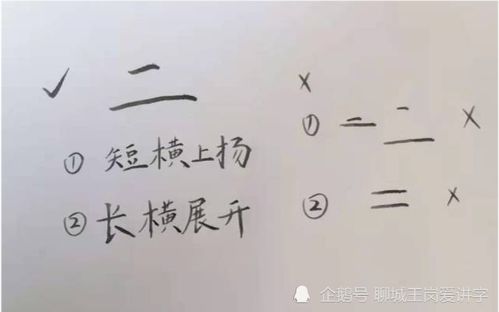 ✓ 二
① 短横上扬
② 长横展开
×
① 二 二 ×
② 二 ×
企鹅号 聊城王岗爱讲字